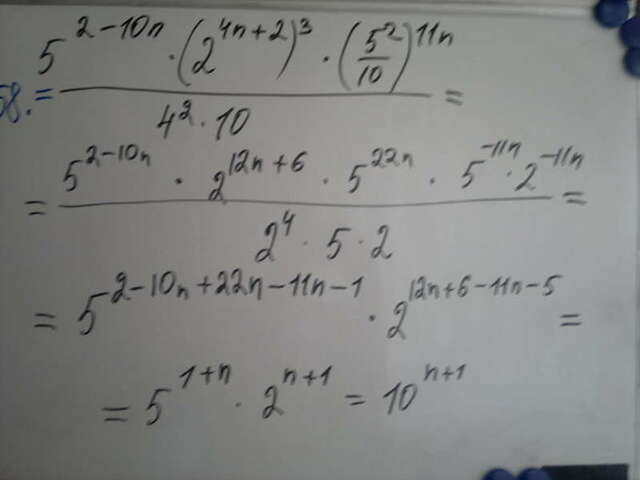 58. = (5^(2-10n) · (2^(4n+2))^3 · (5^2/10)^(11n)) / (4^2 · 10) =
= (5^(2-10n) · 2^(12n+6) · 5^(22n) · 5^(-11n) · 2^(-11n)) / (2^4 · 5 · 2) =
= 5^(2-10n+22n-11n-1) · 2^(12n+6-11n-5) =
= 5^(1+n) · 2^(n+1) = 10^(n+1)